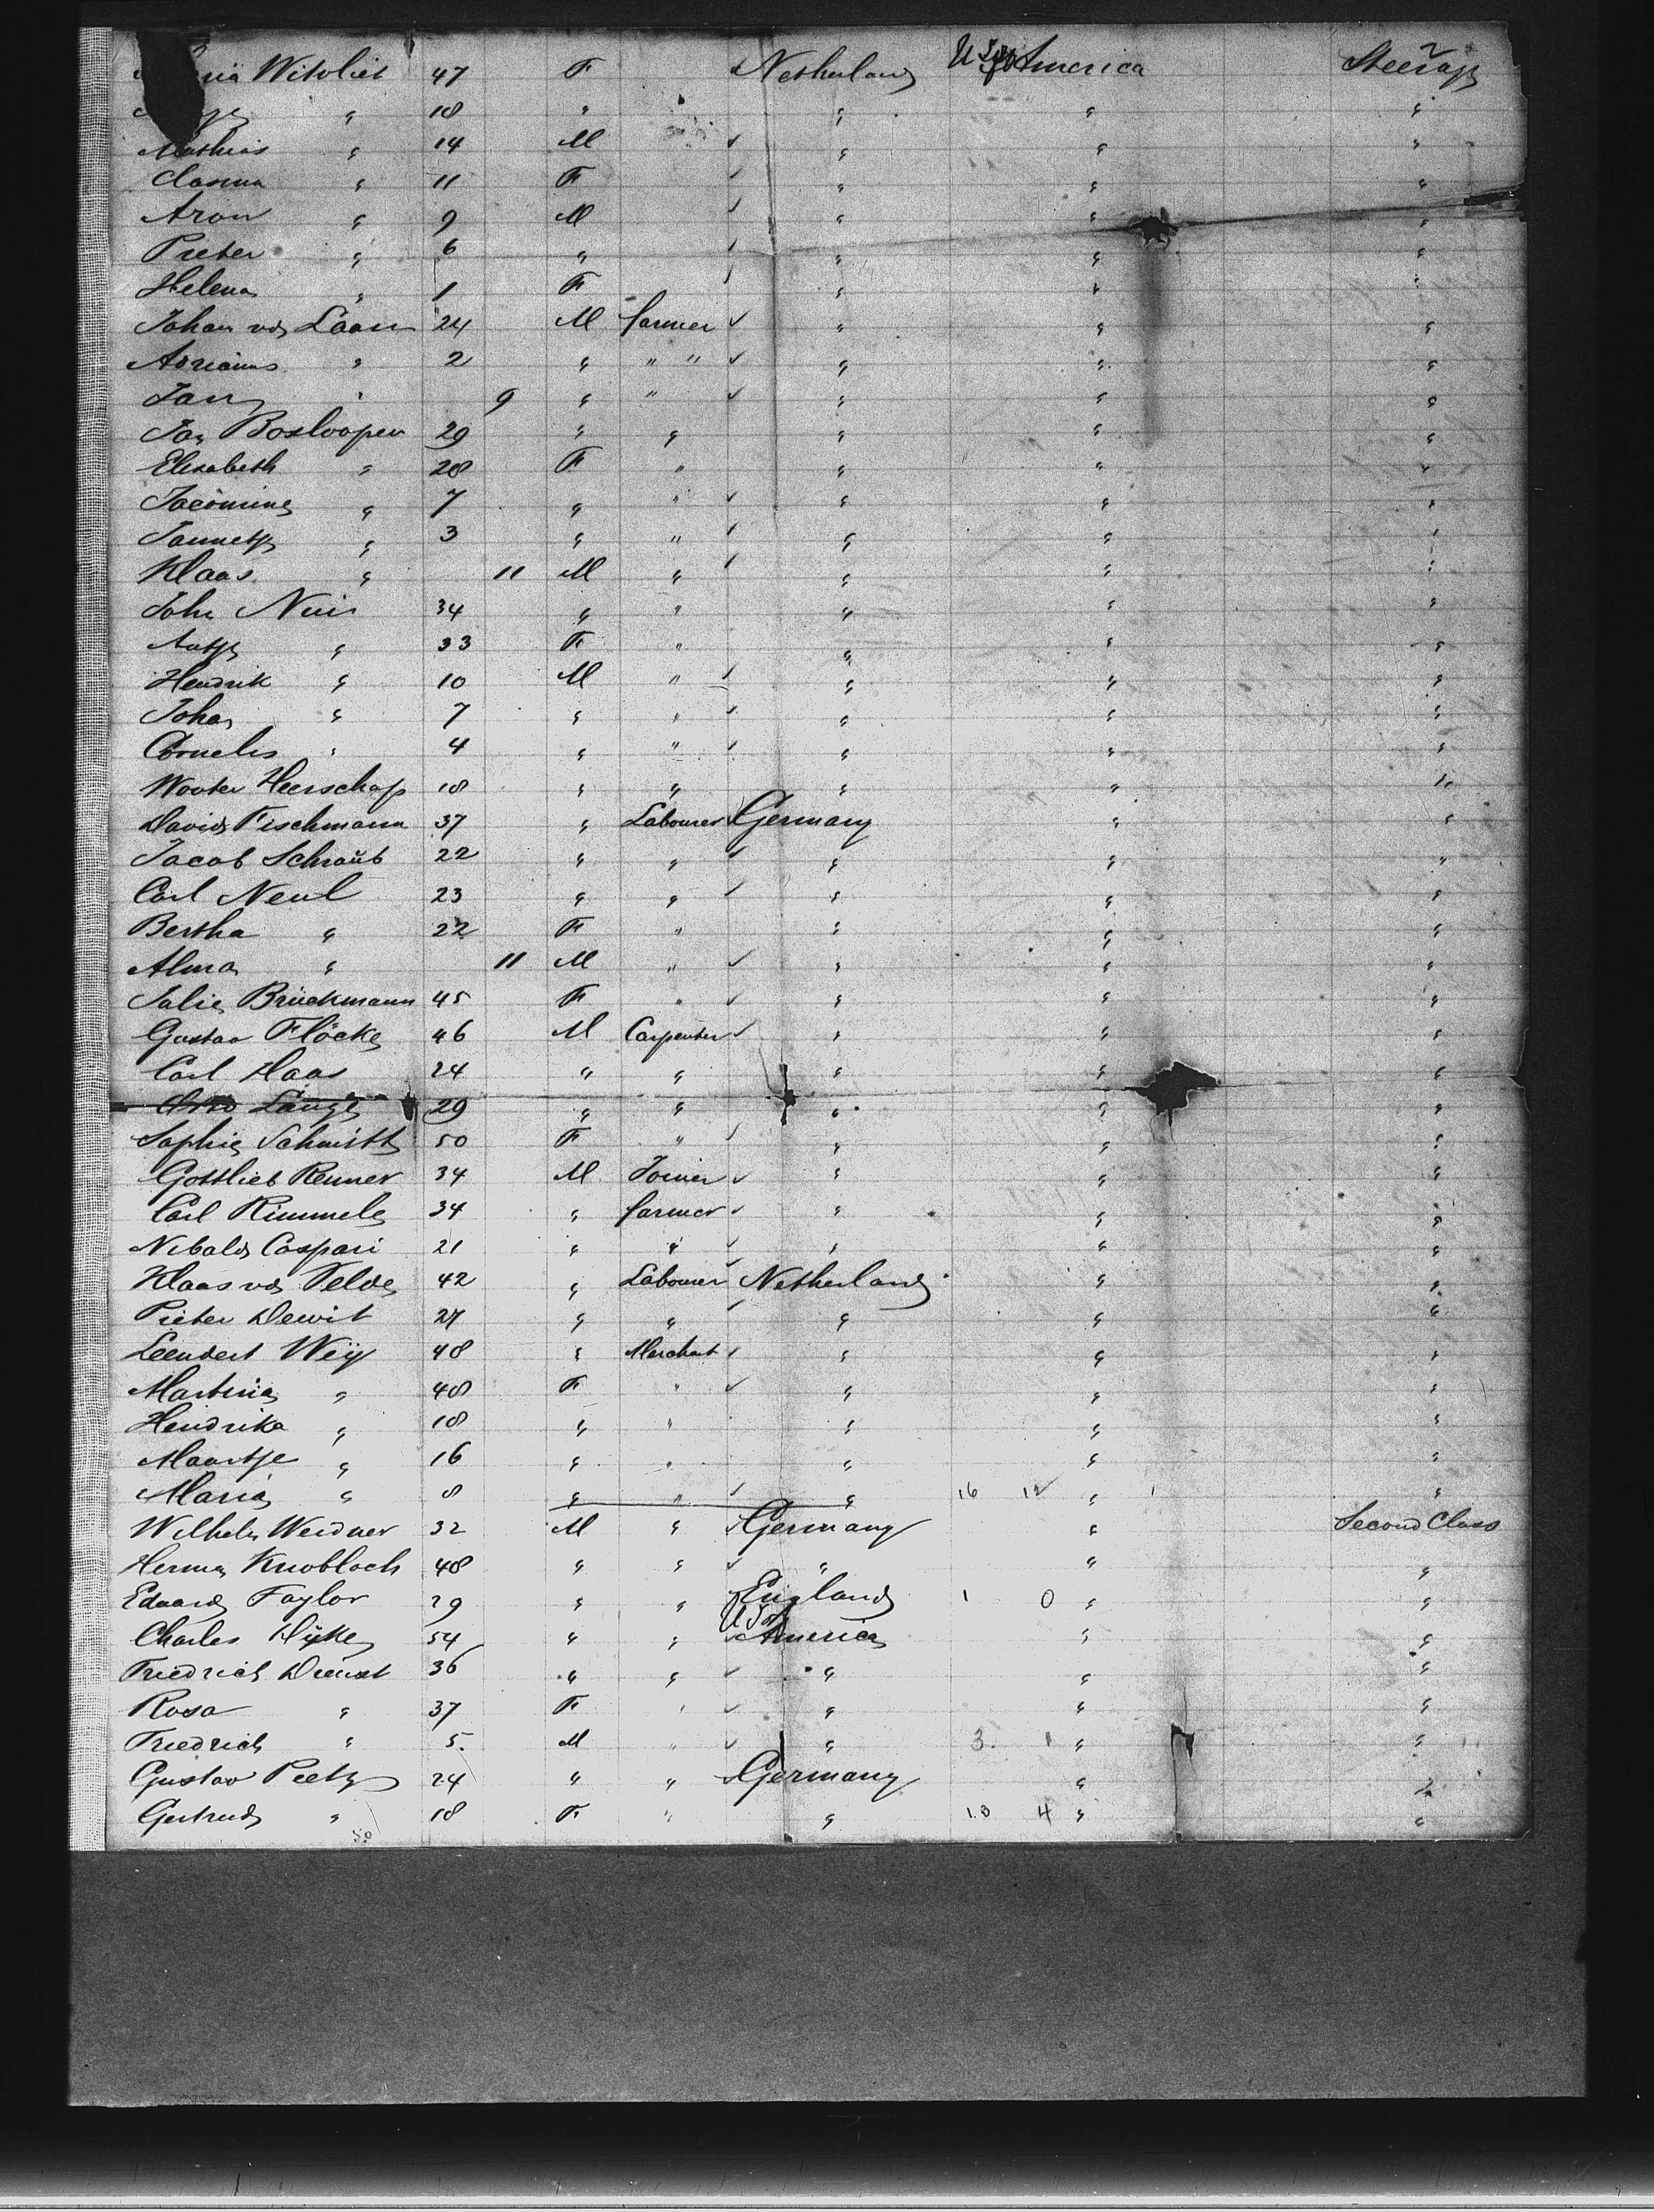 Witvliet 47 F Netherland U S of America Steerage
" 18 " " " "
Mathias " 14 M " " "
Clasina " 11 F " " "
Aron " 9 M " " "
Pieter " 6 " " " "
Helena " 1 F " " "
Johan vd Laan 24 M farmer " " "
Adrianus " 2 " " " " " "
Jan " 9 " " " " "
Jan Bosloopen 29 " " " " "
Elisabeth " 28 F " " " "
Jacomina " 7 " " " " "
Jannetje " 3 " " " " "
Klaas " 11 M " " " "
John Nuis 34 " " " " "
Aatje " 33 F " " " "
Hendrik " 10 M " " " "
Johan " 7 " " " " "
Cornelis " 4 " " " " "
Wouter Heerschap 18 " " " " "
David Fischmann 37 " Labourer Germany " "
Jacob Schraub 22 " " " " "
Carl Neul 23 " " " " "
Bertha " 22 F " " " "
Alma " 11 M " " " "
Julie Brückmann 45 F " " " "
Gustav Flöcke 46 M Carpenter " " "
Carl Haas 24 " " " " "
Otto Lange 29 " " " " "
Sophie Schmitt 50 F " " " "
Gottlieb Renner 34 M Joiner " " "
Carl Rimmele 34 " farmer " " "
Nibald Caspari 21 " " " " "
Klaas vd Velde 42 " Labourer Netherland " "
Pieter Dewit 27 " " " " "
Leendert Weij 48 " Merchant " " "
Martina " 48 F " " " "
Hendrika " 18 " " " " "
Maartje " 16 " " " " "
Maria " 8 " " " 16 12 " "
Wilhelm Weidner 32 M " Germany " Second Class
Herman Knobloch 48 " " " " "
Eduard Taylor 29 " " England 1 0 " "
Charles Dyke 54 " " U S of America " "
Friedrich Dienst 36 " " " " "
Rosa " 37 F " " " "
Friedrich " 5 M " " 3 1 " "
Gustav Peetz 24 " " Germany " "
Gertrud " 18 F " " 13 4 " "
50